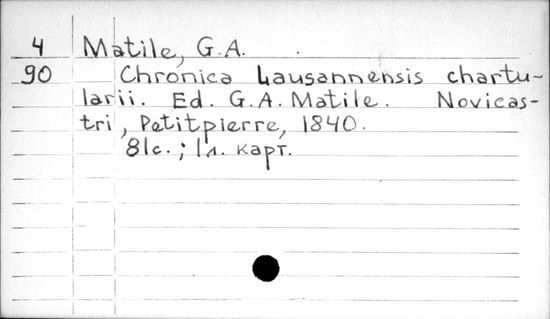 4 Matile, G.A.
90 Chronica Lausannensis chartu-
larii. Ed. G.A. Matile. Novicas-
tri, Petitpierre, 1840.
81c.; 1л. карт.